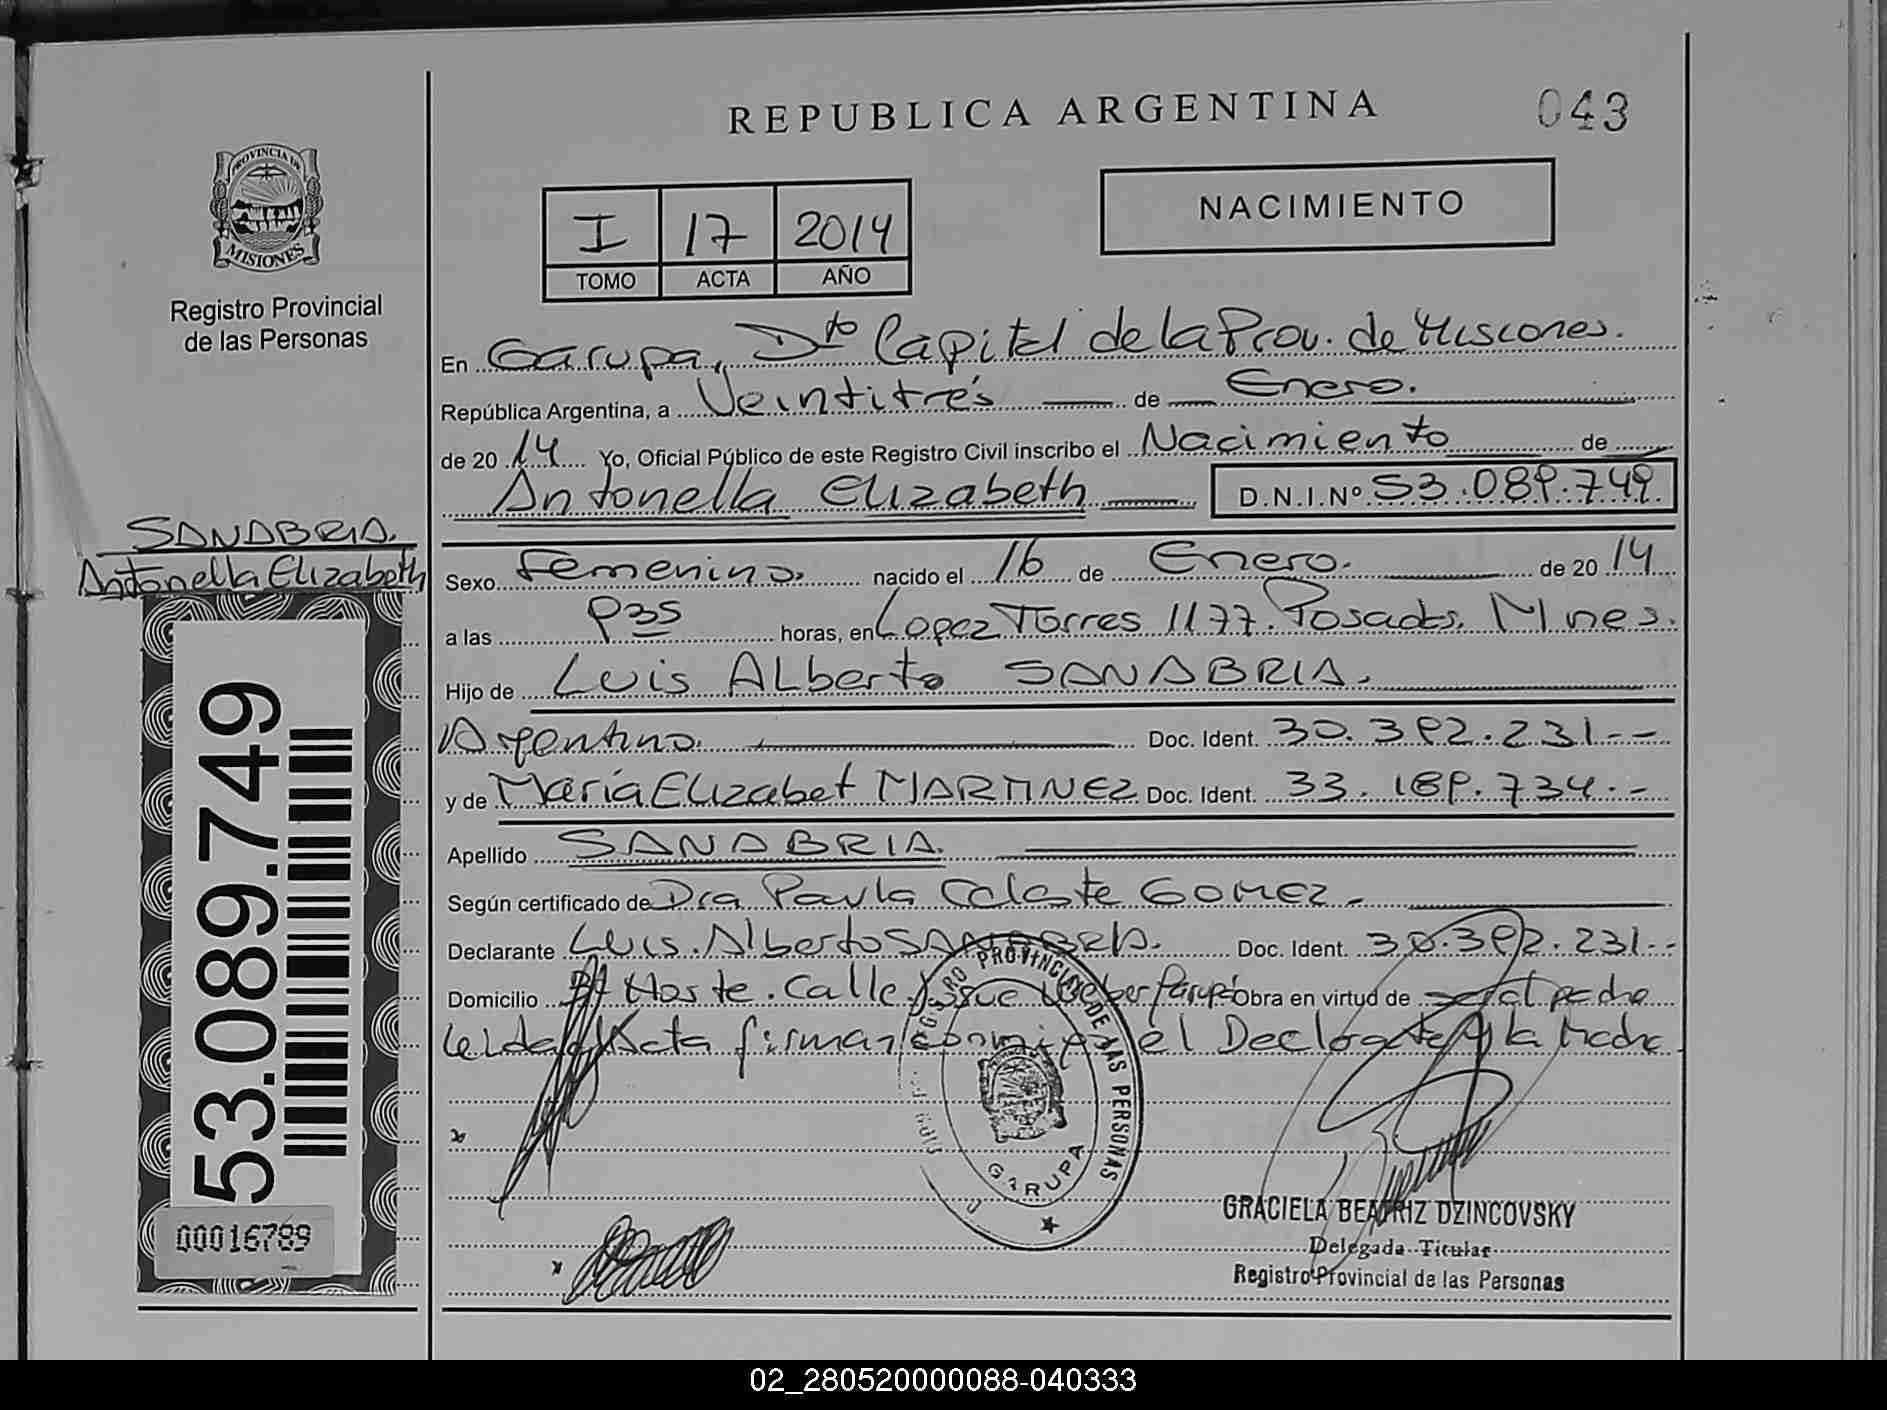 REPUBLICA ARGENTINA
043
PROVINCIA DE
MISIONES
Registro Provincial
de las Personas
I 17 2014
TOMO ACTA AÑO
NACIMIENTO
En Garupa, Dto Capital de la Prov. de Misiones.
República Argentina, a Veintitrés de Enero.
de 2014 Yo, Oficial Público de este Registro Civil inscribo el Nacimiento de
Antonella Elizabeth D.N.I.Nº 53.089.749
SANABRIA.
Antonella Elizabeth
Sexo Femenino. nacido el 16 de Enero. de 2014
a las 935 horas, en Lopez Torres 1177. Posadas. Mnes.
Hijo de Luis Alberto SANABRIA.
Argentino. Doc. Ident. 30.392.231.--
y de María Elizabet MARTINEZ Doc. Ident. 33.189.734.-
Apellido SANABRIA.
Según certificado de Dra Paula Celeste GOMEZ.
Declarante Luis Alberto SANABRIA. Doc. Ident. 30.392.231.--
Domicilio Bº Calle Garupá Obra en virtud de ser el padre
Leida el Acta firman conmigo el Declarante y la Madre.
53.089.749
00016789
REGISTRO PROVINCIAL DE LAS PERSONAS
GARUPA
GRACIELA BEATRIZ DZINCOVSKY
Delegada Titular
Registro Provincial de las Personas
02_280520000088-040333